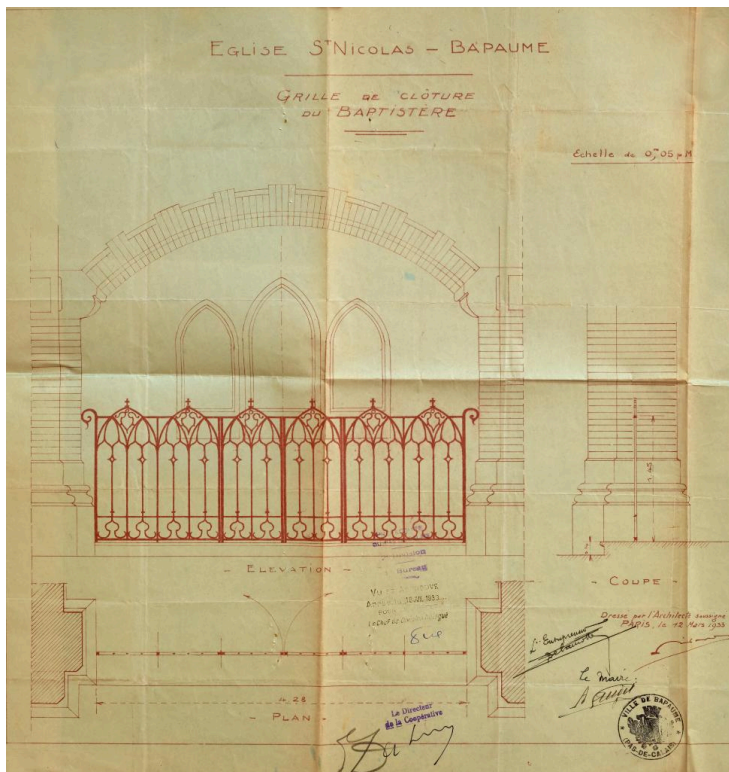 EGLISE ST NICOLAS - BAPAUME
GRILLE DE CLÔTURE
DU BAPTISTÈRE
Echelle de 0m,05 p.M
- ELEVATION -
VU
1933
- COUPE -
Dressé par l'Architecte soussigné
PARIS, le 12 Mars 1933
L'Entrepreneur
Le Maire
4.28
- PLAN -
Le Directeur
de la Coopérative
VILLE DE BAPAUME
(PAS-DE-CALAIS)
1.45